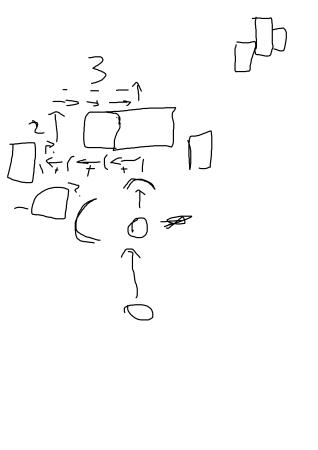 3
- - -
2
?
+ + + 1
- ?